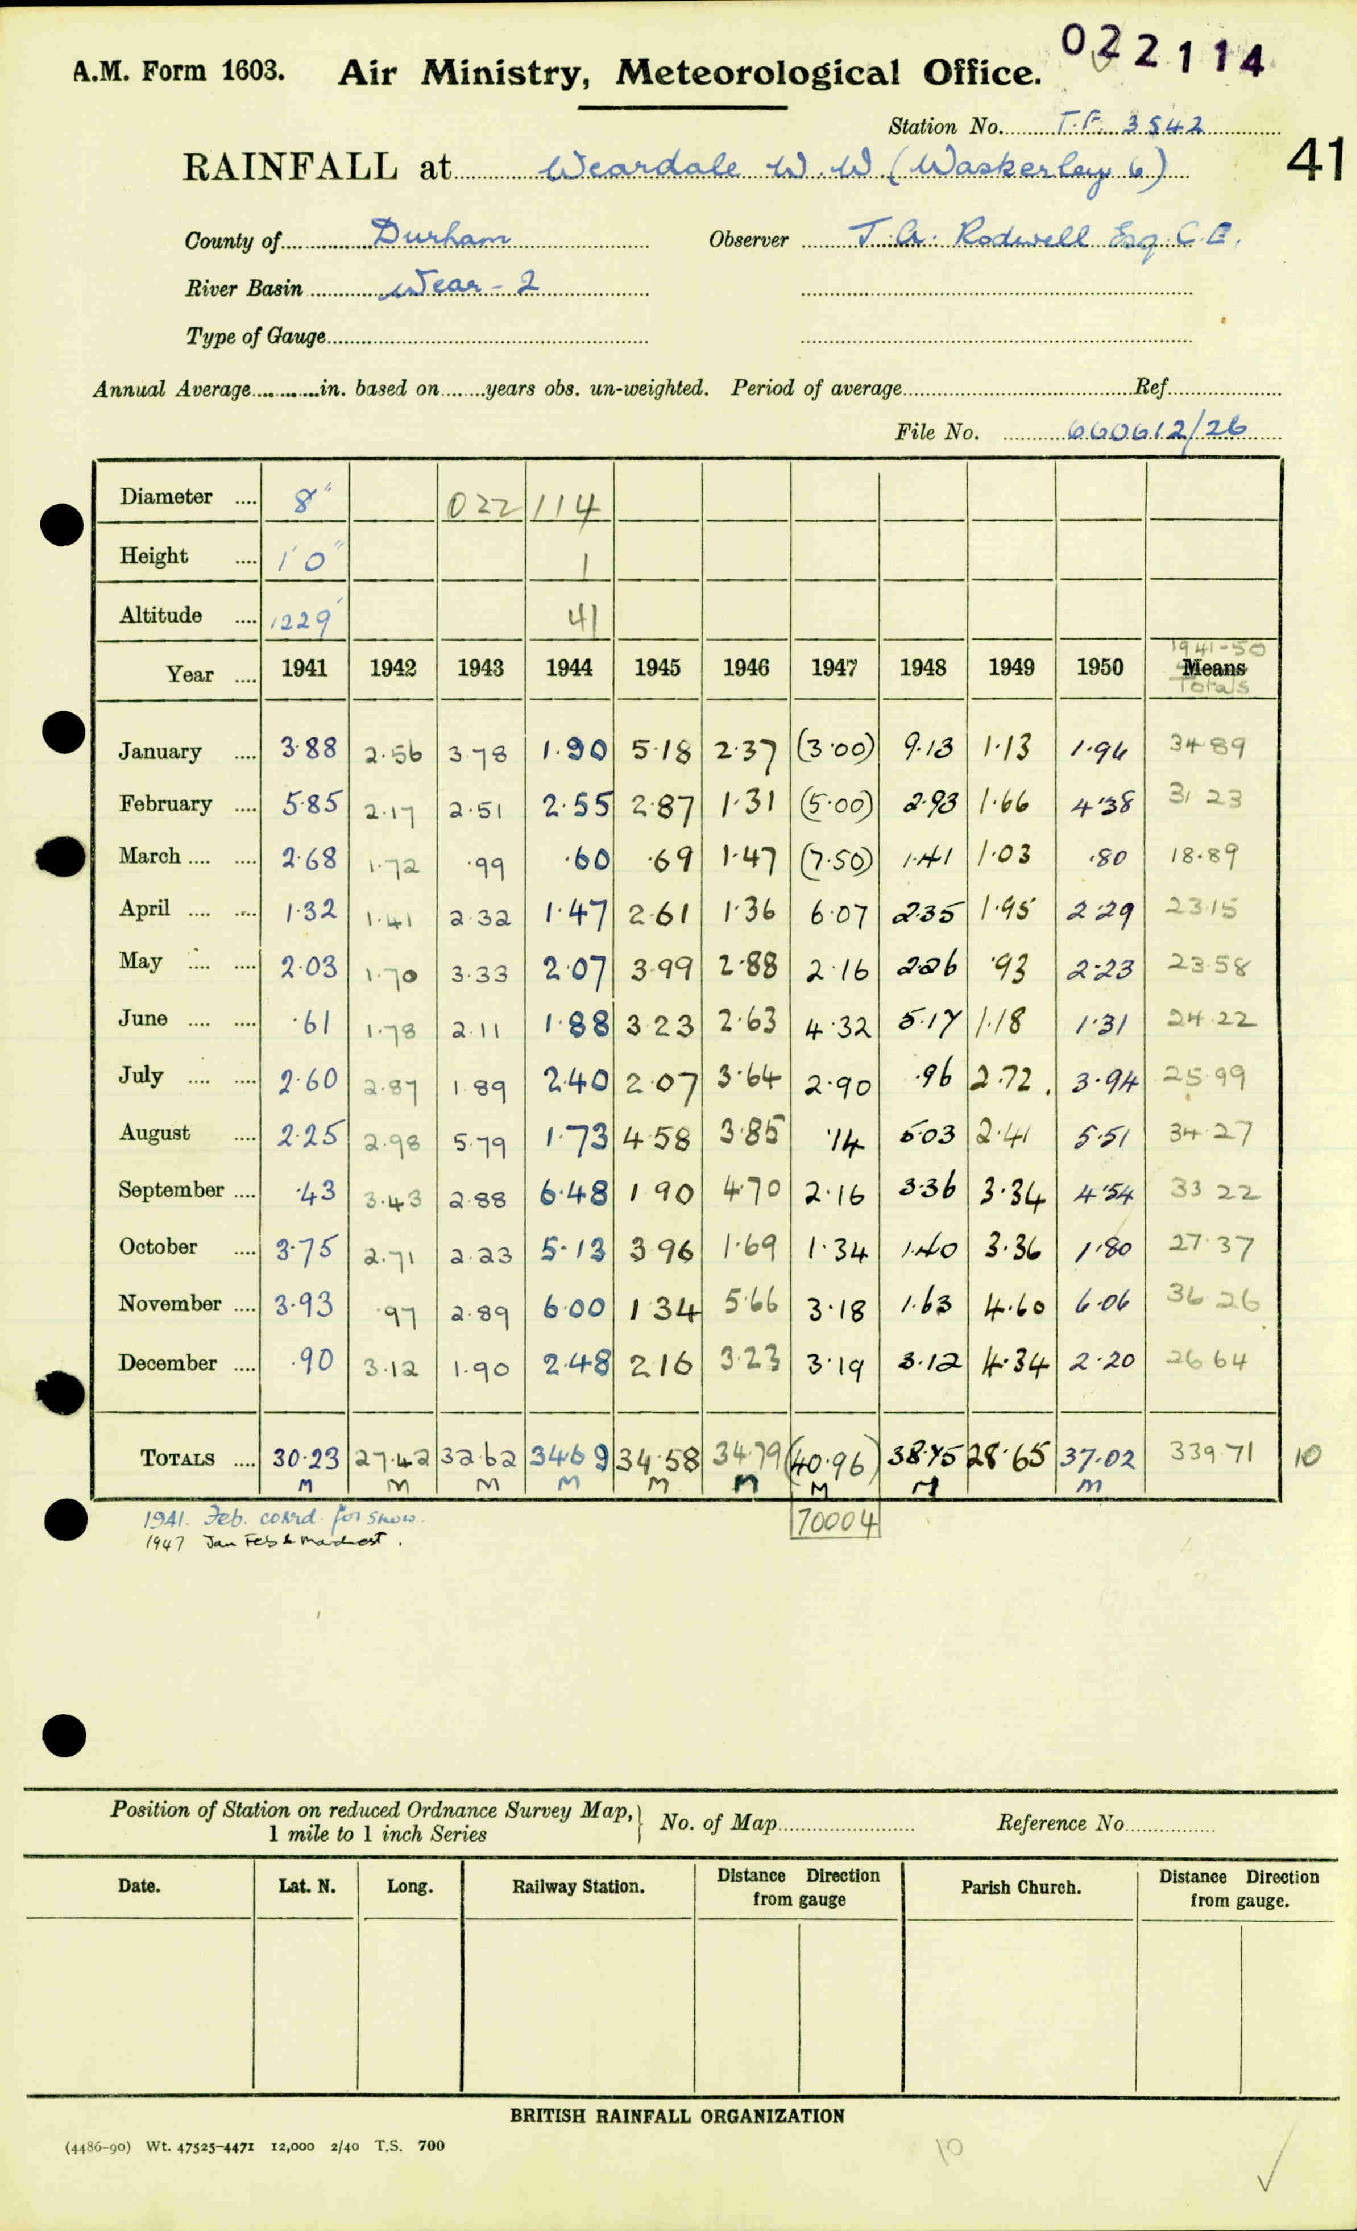 022114
A.M. Form 1603. Air Ministry, Meteorological Office.
Station No. T.F. 3542
41
RAINFALL at Weardale W.W (Waskerley 6)
County of Durham Observer J. A. Rodwell Esq. C.E.
River Basin Wear - 2
Type of Gauge
Annual Average in. based on years obs. un-weighted. Period of average Ref
File No. 660612/26
Diameter .... 8" 022114
Height .... 1'0" 1
Altitude .... 1229' 41
Year .... 1941 1942 1943 1944 1945 1946 1947 1948 1949 1950 1941-50 Means Totals
January .... 3.88 2.56 3.78 1.90 5.18 2.37 (3.00) 9.13 1.13 1.96 34.89
February .... 5.85 2.17 2.51 2.55 2.87 1.31 (5.00) 2.93 1.66 4.38 31 23
March .... .... 2.68 1.72 .99 .60 .69 1.47 (7.50) 1.41 1.03 .80 18.89
April .... .... 1.32 1.41 2.32 1.47 2.61 1.36 6.07 2.35 1.95 2.29 23.15
May .... .... 2.03 1.70 3.33 2.07 3.99 2.88 2.16 2.26 .93 2.23 23.58
June .... .... .61 1.78 2.11 1.88 3.23 2.63 4.32 5.17 1.18 1.31 24.22
July .... .... 2.60 2.87 1.89 2.40 2.07 3.64 2.90 .96 2.72 3.94 25.99
August .... 2.25 2.98 5.79 1.73 4.58 3.85 .14 5.03 2.41 5.51 34.27
September .... .43 3.43 2.88 6.48 1.90 4.70 2.16 3.36 3.34 4.54 33 22
October .... 3.75 2.71 2.23 5.13 3.96 1.69 1.34 1.40 3.36 1.80 27.37
November .... 3.93 .97 2.89 6.00 1.34 5.66 3.18 1.63 4.60 6.06 36 26
December .... .90 3.12 1.90 2.48 2.16 3.23 3.19 3.12 4.34 2.20 26 64
TOTALS .... 30.23 27.42 32.62 34.69 34.58 34.79 (40.96) 38.75 28.65 37.02 339.71 10
M M M M M M M M M
1941. Feb. corrd. for snow. 70004
1947 Jan Feb & March est.
Position of Station on reduced Ordnance Survey Map, } No. of Map Reference No
1 mile to 1 inch Series
Date. Lat. N. Long. Railway Station. Distance Direction from gauge Parish Church. Distance Direction from gauge.
BRITISH RAINFALL ORGANIZATION
(4486-90) Wt. 47525-4471 12,000 2/40 T.S. 700
10